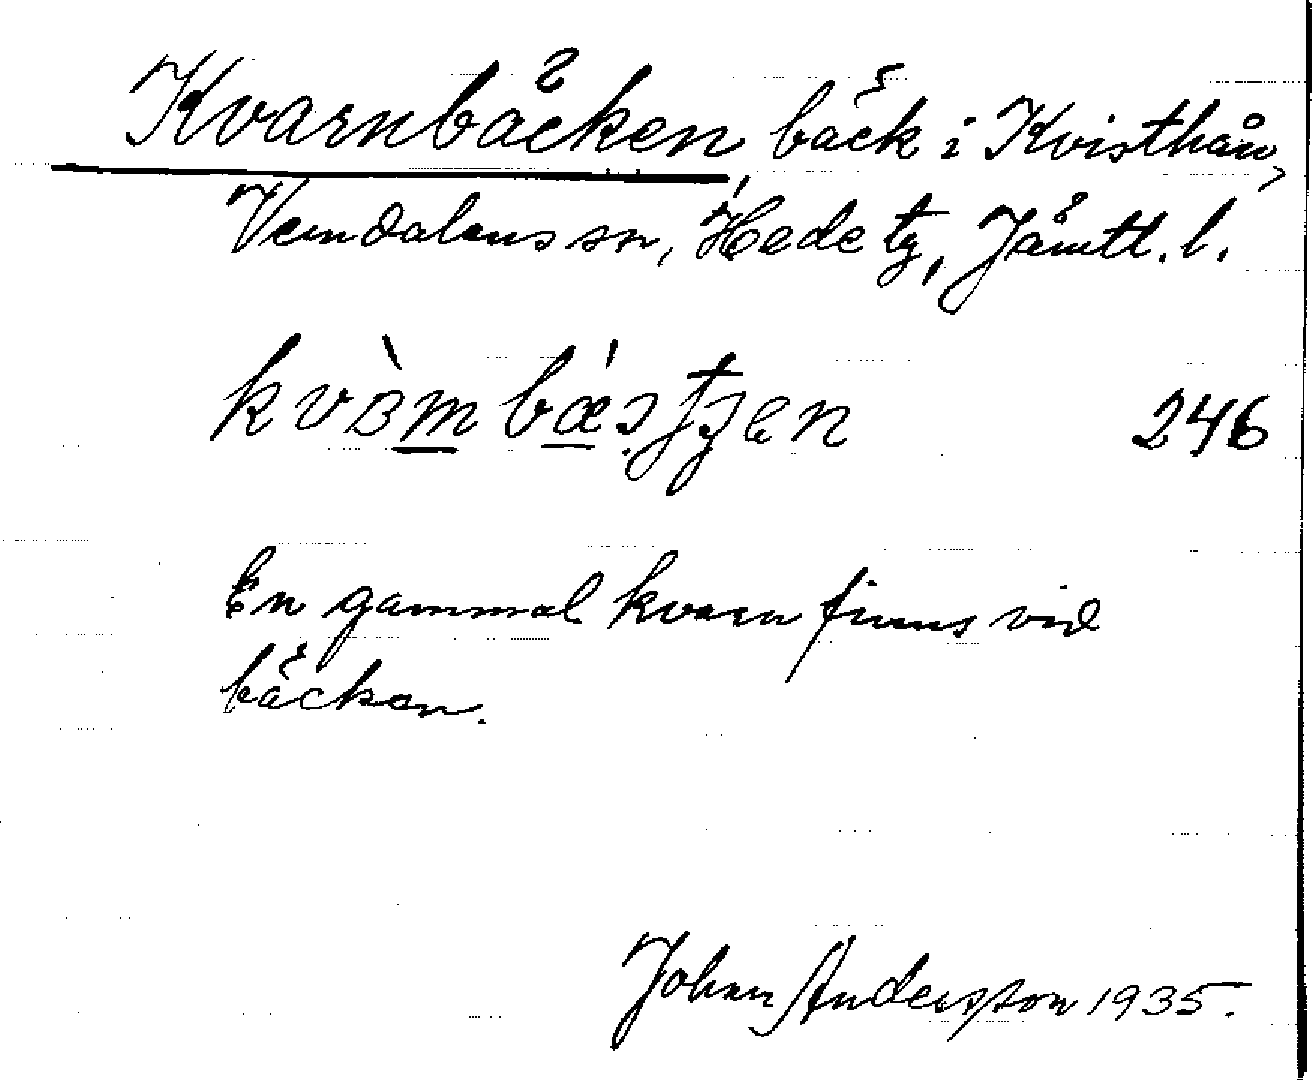 Kvarnbäcken, bäck i Kvisthån,
Vemdalens sn, Hede tg, Jämtl. l.
246
En gammal kvarn finns vid
bäcken.
Johan Andersson 1935.